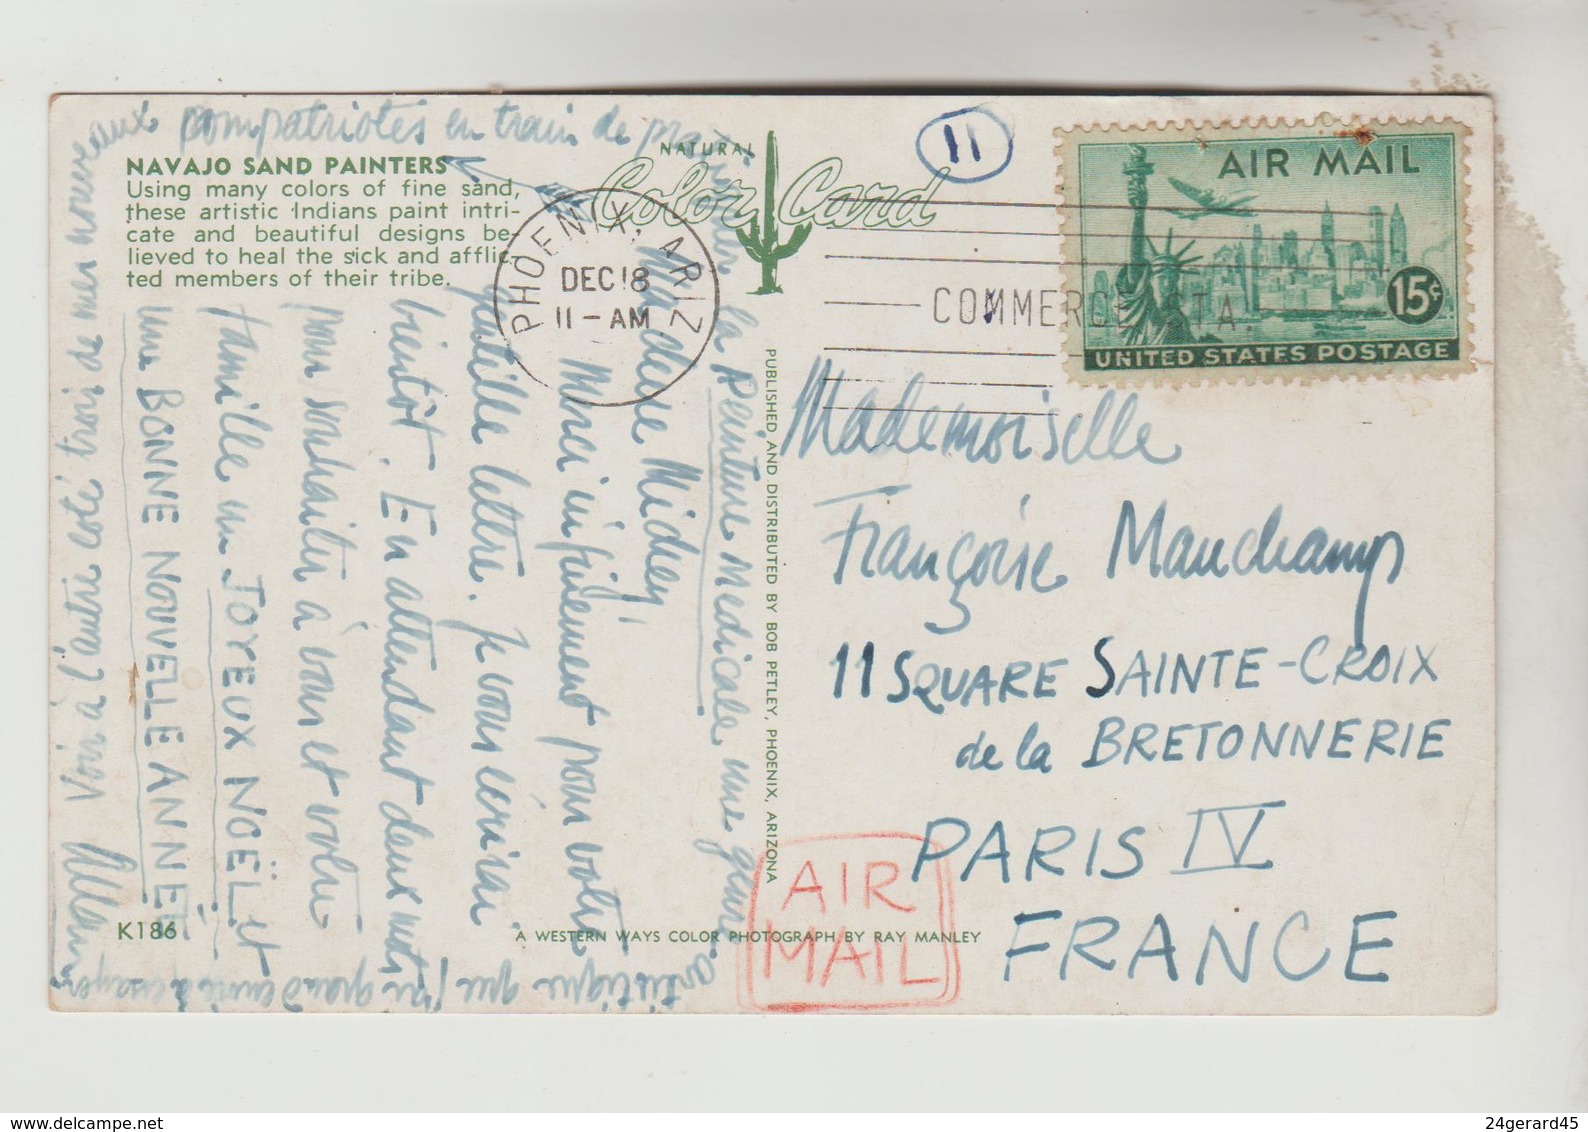 NAVAJO SAND PAINTERS
Using many colors of fine sand,
these artistic Indians paint intri-
cate and beautiful designs be-
lieved to heal the sick and afflic-
ted members of their tribe.
K186
NATURAL
Color Card
PHOENIX, ARIZ
DEC 18
11-AM
COMMERCE STA.
11
AIR MAIL
15¢
UNITED STATES POSTAGE
Mademoiselle
Françoise Mauchamp
11 SQUARE SAINTE-CROIX
de la BRETONNERIE
PARIS IV
FRANCE
AIR
MAIL
PUBLISHED AND DISTRIBUTED BY BOB PETLEY, PHOENIX, ARIZONA
A WESTERN WAYS COLOR PHOTOGRAPH BY RAY MANLEY
Madame Midney
Merci infiniment pour votre
gentille lettre. Je vous écrirai
bientôt. En attendant deux mots
pour souhaiter à vous et votre
famille un JOYEUX NOËL et
une BONNE NOUVELLE ANNÉE
Voir à l'autre coté trois de mes nouveaux
compatriotes en train de
la Peinture Medicale une
artistique que j'ai grand envie d'essayer
24gerard45
www.delcampe.net